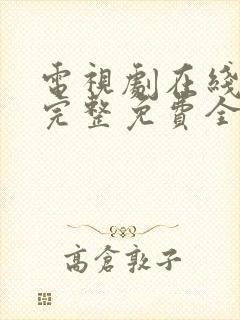 電視劇在綫
完整免費全
高倉敦子